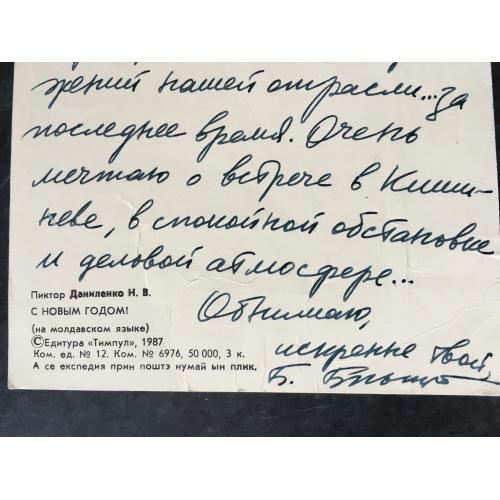 жений нашей отрасли... за
последнее время. Очень
мечтаю о встрече в Киши-
неве, в спокойной обстановке
и деловой атмосфере...
Обнимаю,
искренне твой,
Б.
Пиктор Даниленко Н. В.
С НОВЫМ ГОДОМ!
(на молдавском языке)
©Едитура «Тимпул», 1987
Ком. ед. № 12. Ком. № 6976, 50 000, 3 к.
А се експедия прин поштэ нумай ын плик.